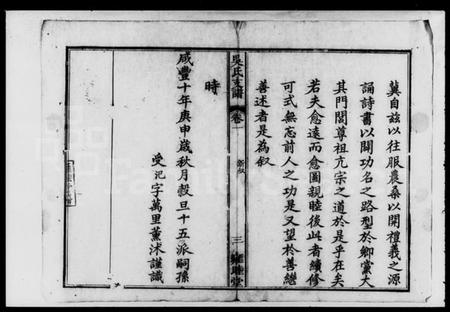 冀自玆以往服農桑以開禮義之源
誦詩書以開功名之路型於鄉黨大
其門閭尊祖亢宗之道於是乎在矣
若夫愈遠而愈圖親睦後此者續修
可式無忘前人之功是又望於善繼
善述者是為叙
吳氏支譜
卷一
新叙
三
時
咸豐十年庚申歲秋月穀旦十五派嗣孫
受汜字萬里薰沐謹識